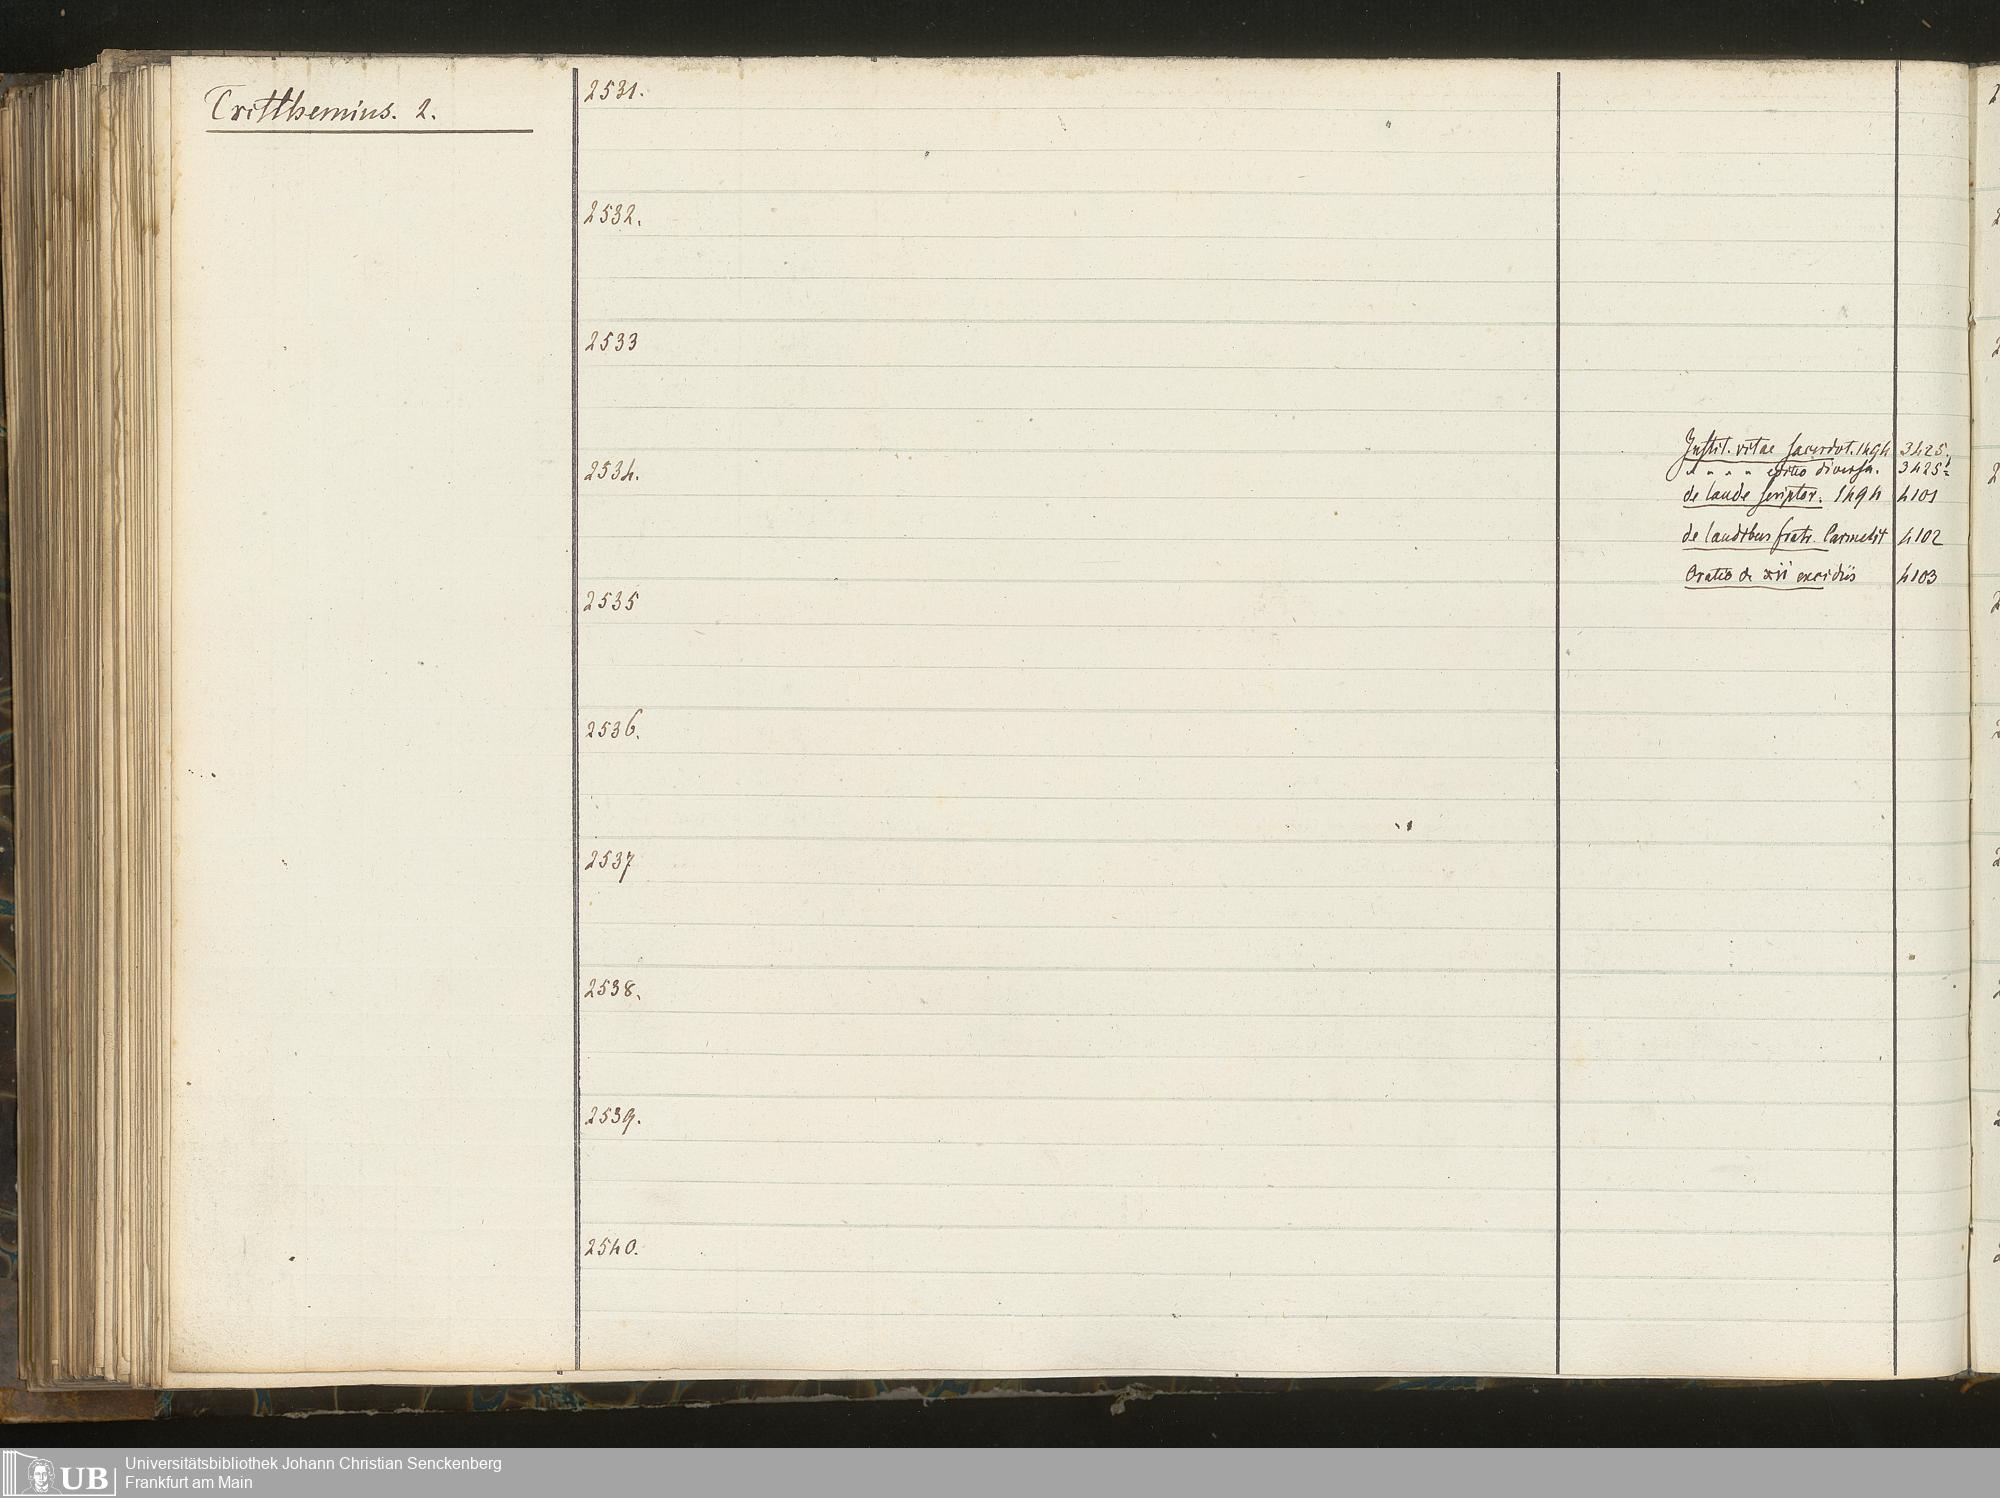 Tritthemius. 2.
2531.
2532.
2533
Instit. vitae sacerdot. 1494 3425.
" " " " editio diversa. 3425
2534.
de laude scriptor. 1494 4101
de laudibus fratr. Carmelit 4102
Oratio de xii excidiis 4103
2535
2536.
2537
2538.
2539.
2540.
Universitätsbibliothek Johann Christian Senckenberg
Frankfurt am Main
UB